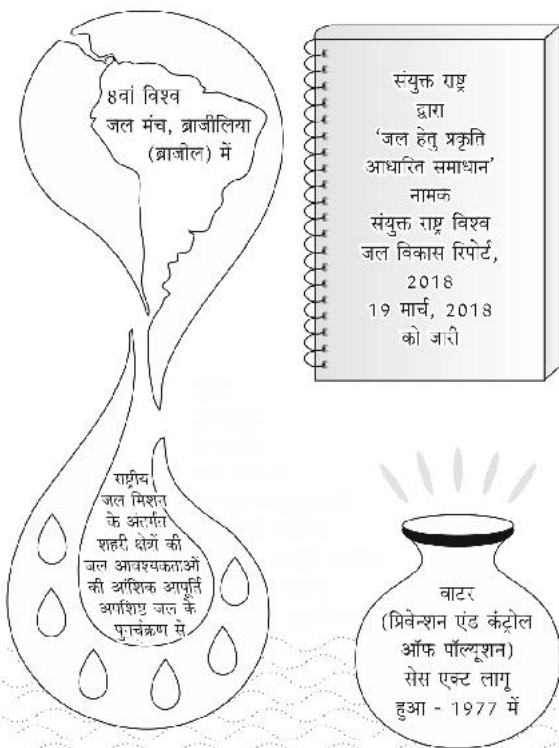 8वां विश्व
जल मंच, ब्राजीलिया
(ब्राजील) में
संयुक्त राष्ट्र
द्वारा
'जल हेतु प्रकृति
आधारित समाधान'
नामक
संयुक्त राष्ट्र विश्व
जल विकास रिपोर्ट,
2018
19 मार्च, 2018
को जारी
राष्ट्रीय
जल मिशन
के अंतर्गत
शहरी क्षेत्रों की
जल आवश्यकताओं
की आंशिक आपूर्ति
अपशिष्ट जल के
पुनर्चक्रण से
वाटर
(प्रिवेन्शन एंड कंट्रोल
ऑफ पॉल्यूशन)
सेस एक्ट लागू
हुआ - 1977 में